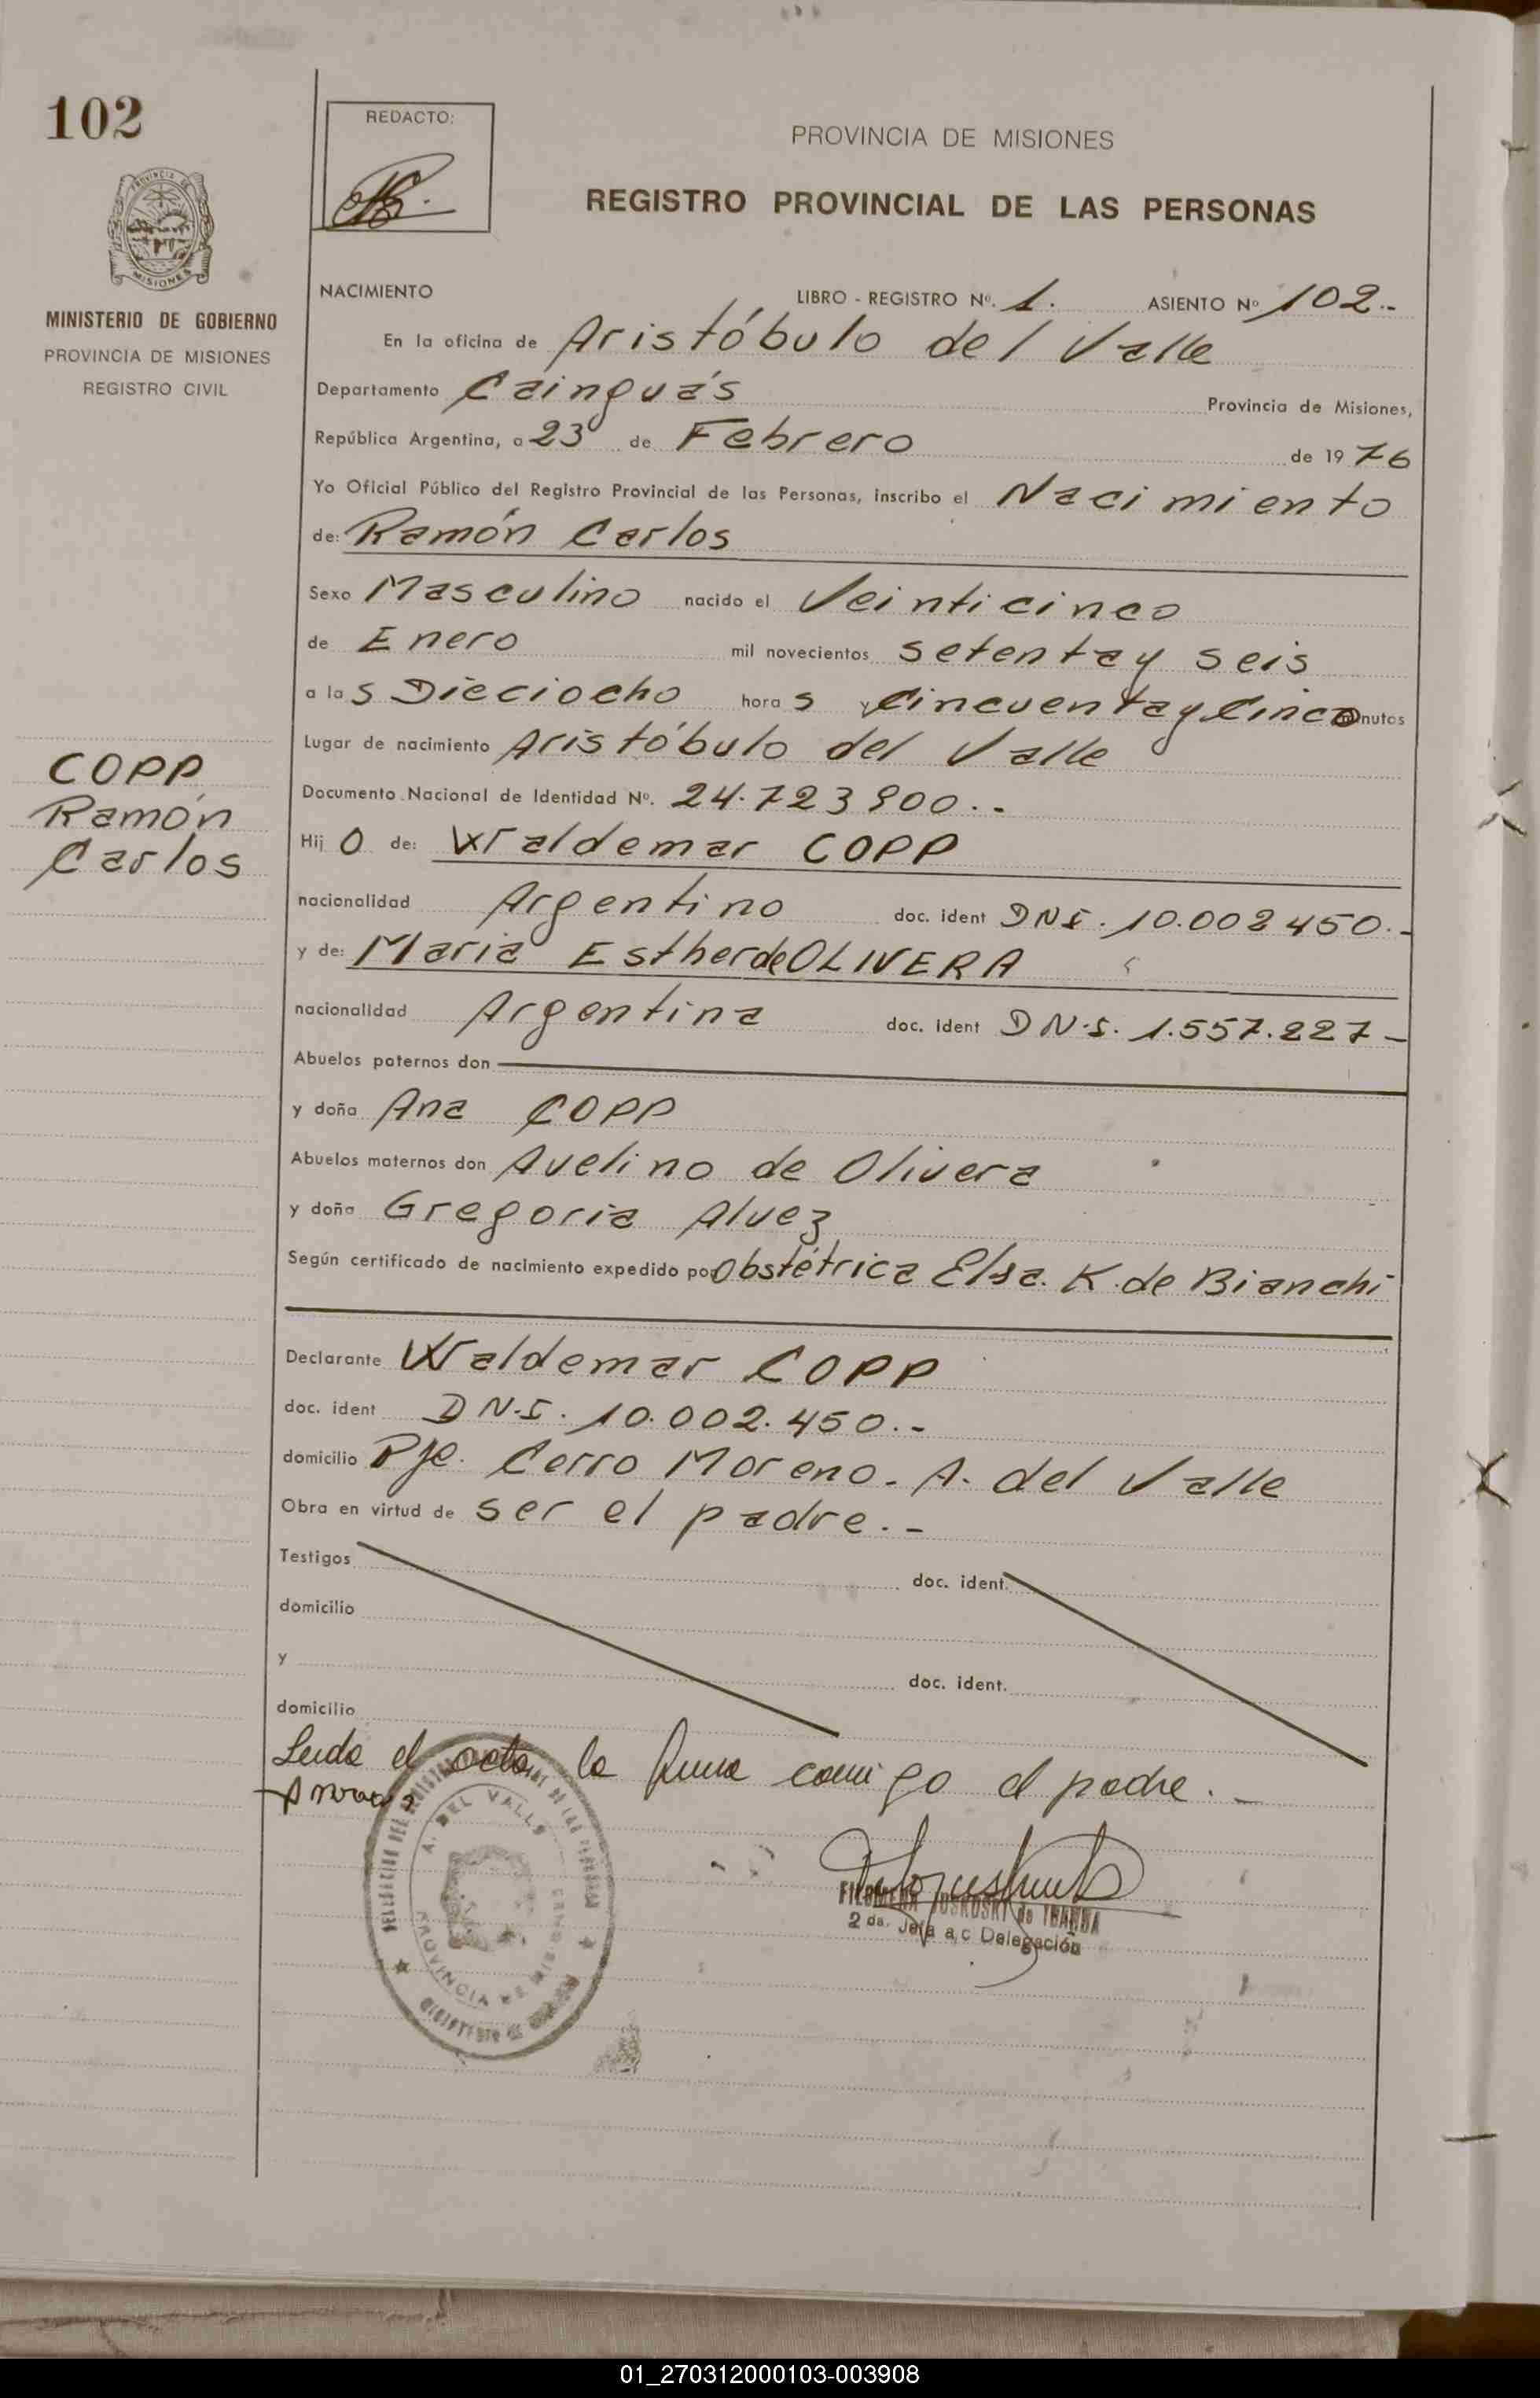 102
REDACTO:
PROVINCIA DE MISIONES
REGISTRO PROVINCIAL DE LAS PERSONAS
MISIONES
MINISTERIO DE GOBIERNO
PROVINCIA DE MISIONES
REGISTRO CIVIL
NACIMIENTO LIBRO - REGISTRO Nº. 1. ASIENTO Nº 102.-
En la oficina de Aristóbulo del Valle
Departamento Cainguás Provincia de Misiones,
República Argentina, a 23 de Febrero de 1976
Yo Oficial Público del Registro Provincial de las Personas, inscribo el Nacimiento
de: Ramón Carlos
Sexo Masculino nacido el Veinticinco
de Enero mil novecientos setenta y seis
a las Dieciocho horas y Cincuenta y Cinco minutos
Lugar de nacimiento Aristóbulo del Valle
COPP
Ramón
Carlos
Documento Nacional de Identidad Nº. 24.723900.-
Hijo de: Waldemar COPP
nacionalidad Argentino doc. ident DNI. 10.002450.-
y de: Maria Esther de OLIVERA
nacionalidad Argentina doc. ident DN.I. 1.557.227-
Abuelos paternos don
y doña Ana COPP
Abuelos maternos don Avelino de Olivera
y doña Gregoria Alvez
Según certificado de nacimiento expedido por Obstétrica Elsa. K. de Bianchi
Declarante Waldemar COPP
doc. ident DN.I. 10.002.450.-
domicilio Pje. Cerro Moreno. A. del Valle
Obra en virtud de ser el padre.-
Testigos doc. ident.
domicilio
y doc. ident.
domicilio
Leida el acta la firma conmigo el padre.-
A. DEL VALLE
PROVINCIA DE MISIONES
FILOMENA de
2da. Jefa a/c Delegación
01_270312000103-003908